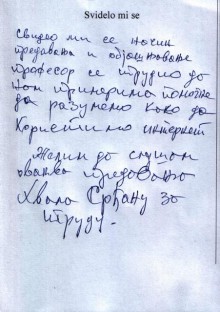 Svidelo mi se
свидео ми се начин
предавања и објашњавање
професор се трудио да
нам примерима помогне
да разумемо како да
користимо интернет
Желим да слушам
оваква предавања
Хвала Срђану за
труду.